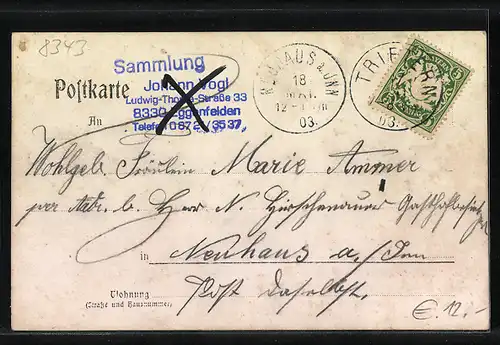 8343
Sammlung
Johann Vogl
Ludwig-Thoma-Straße 33
8330 Eggenfelden
Telefon 08721/3537
Postkarte
An
NEUHAUS a. INN
18
MAI.
03.
TRIFTERN
03.
Wohlgeb. Fräulein Marie Ammer
per Adr. b. Herrn N. Hirschenauer Gasthofbesitzer
in Neuhaus a./Inn
Post daselbst.
Wohnung
(Straße und Hausnummer)
€ 12.-